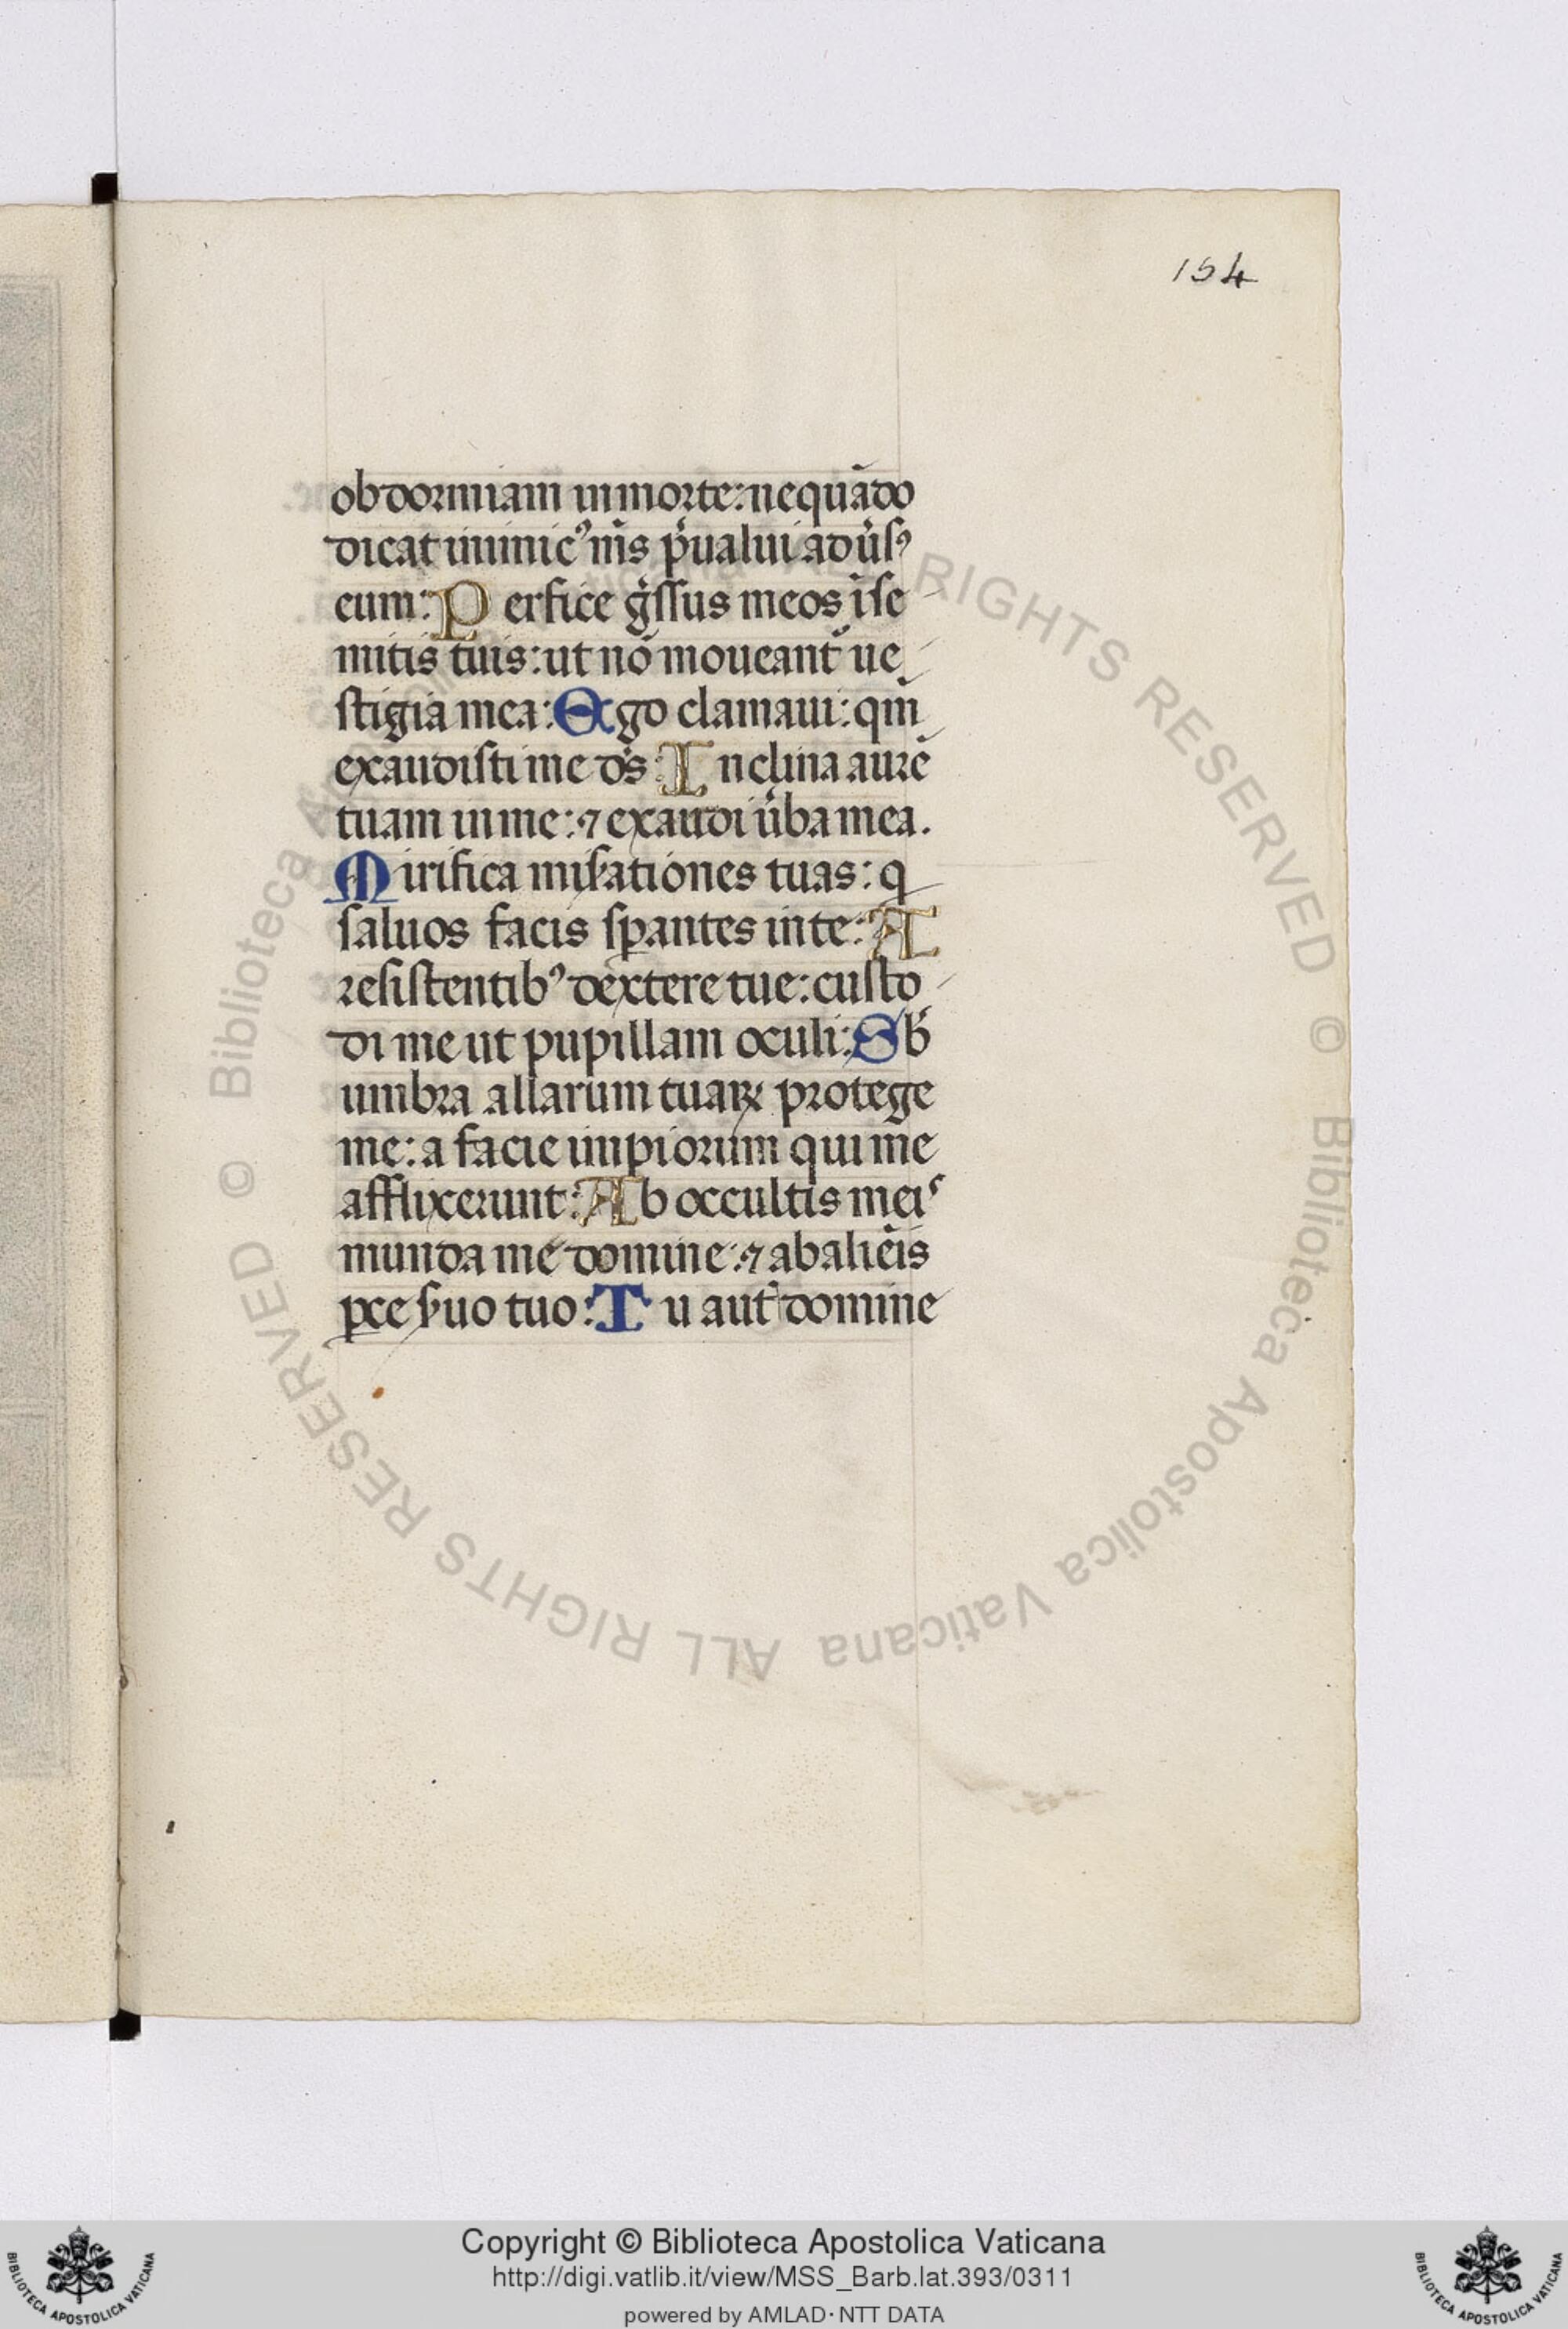 154
obdormiam in morte: nequãdo
dicat inimicꝰ me̅s p̄ualui adu̅sꝰ
eum: Perfice g̾ssus meos i̅ se
mitis tuis: ut nõ moueant᷑ ue
stigia mea: Ego clamaui: qm̅
exaudisti me ds̅: Inclina aurẽ
tuam in me: ⁊ exaudi u̾ba mea.
Mirifica mis̾ationes tuas: q
saluos facis sꝑantes in te: A
resistentibꝰ dextere tue: custo
di me ut pupillam oculi: Sb̾
umbra allarum tuaꝝ protege
me: a facie impiorum qui me
afflixerunt: Ab occultis meis
munda me domine: ⁊ ab aliẽis
ꝑce s̾uo tuo: Tu aut̾ domine
© Biblioteca Apostolica Vaticana ALL RIGHTS RESERVED © Biblioteca Apostolica Vaticana ALL RIGHTS RESERVED
BIBLIOTECA APOSTOLICA VATICANA
Copyright © Biblioteca Apostolica Vaticana
http://digi.vatlib.it/view/MSS_Barb.lat.393/0311
powered by AMLAD·NTT DATA
BIBLIOTECA APOSTOLICA VATICANA